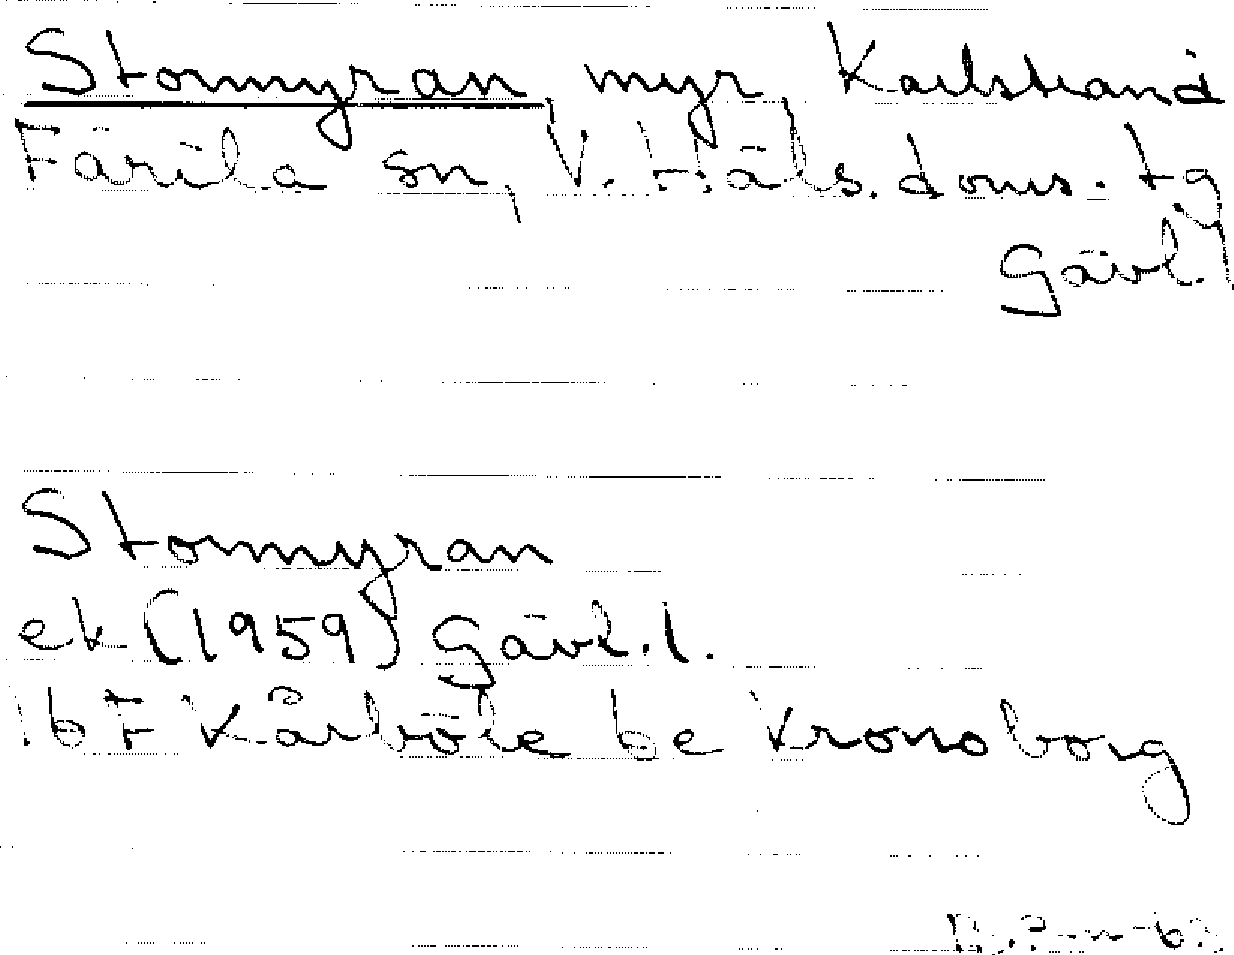 Stormyran, myr, Karlstrand
Färila sn, V. Häls. doms. tg,
Gävl.l
Stormyran
ek (1959) Gävl.l.
16 F Kårböle be Kronoborg